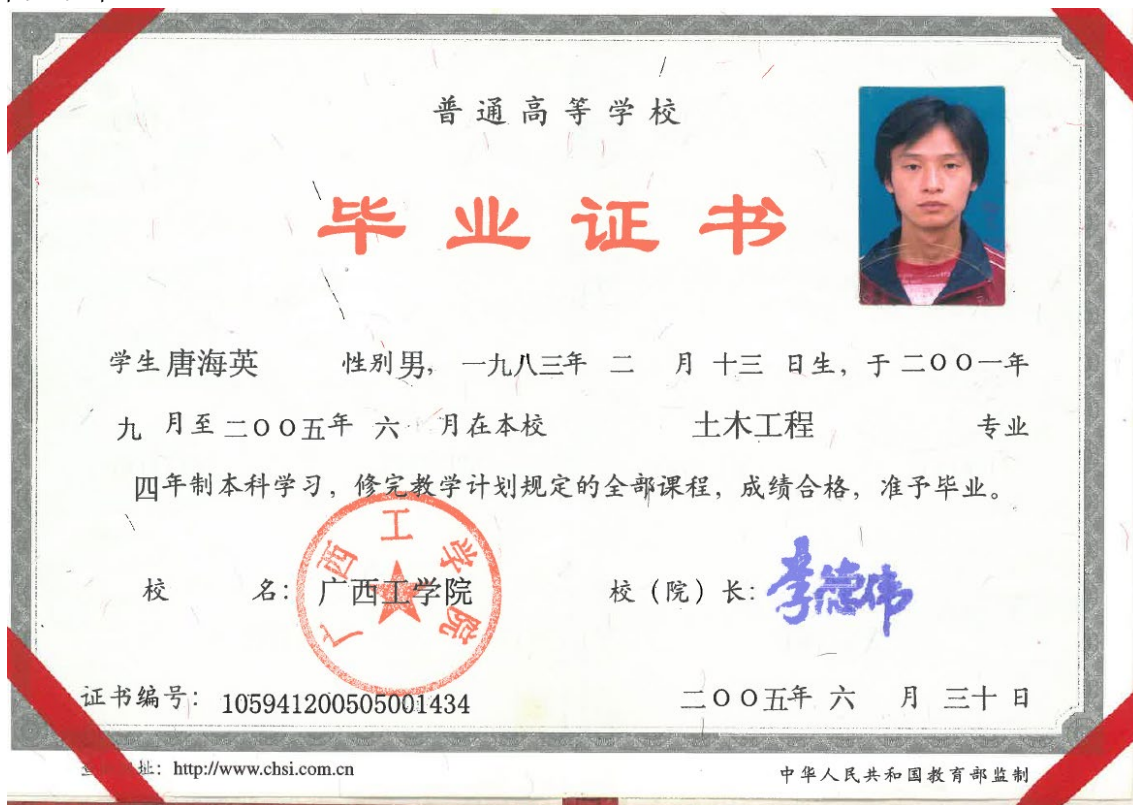 普通高等学校
毕业证书
学生 唐海英 性别 男, 一九八三年 二 月 十三 日生, 于 二〇〇一年
九 月至 二〇〇五年 六 月在本校 土木工程 专业
四年制本科学习, 修完教学计划规定的全部课程, 成绩合格, 准予毕业。
广西工学院
校 名: 广西工学院 校(院)长: 李德伟
证书编号: 105941200505001434 二〇〇五年 六 月 三十 日
址: http://www.chsi.com.cn 中华人民共和国教育部监制